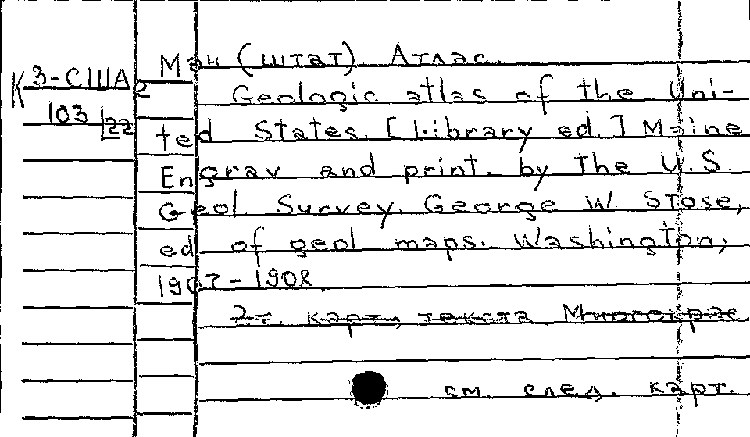 К 3-США2
103 |22
Мэн (штат). Атлас.
Geologic atlas of the Uni-
ted States. [Library ed.] Maine
Engrav and print. by The U.S.
Geol. Survey. George W. Stose,
ed. of geol maps. Washington,
1907-1908.
2т. карт, текста Многокрас
см. след. карт.